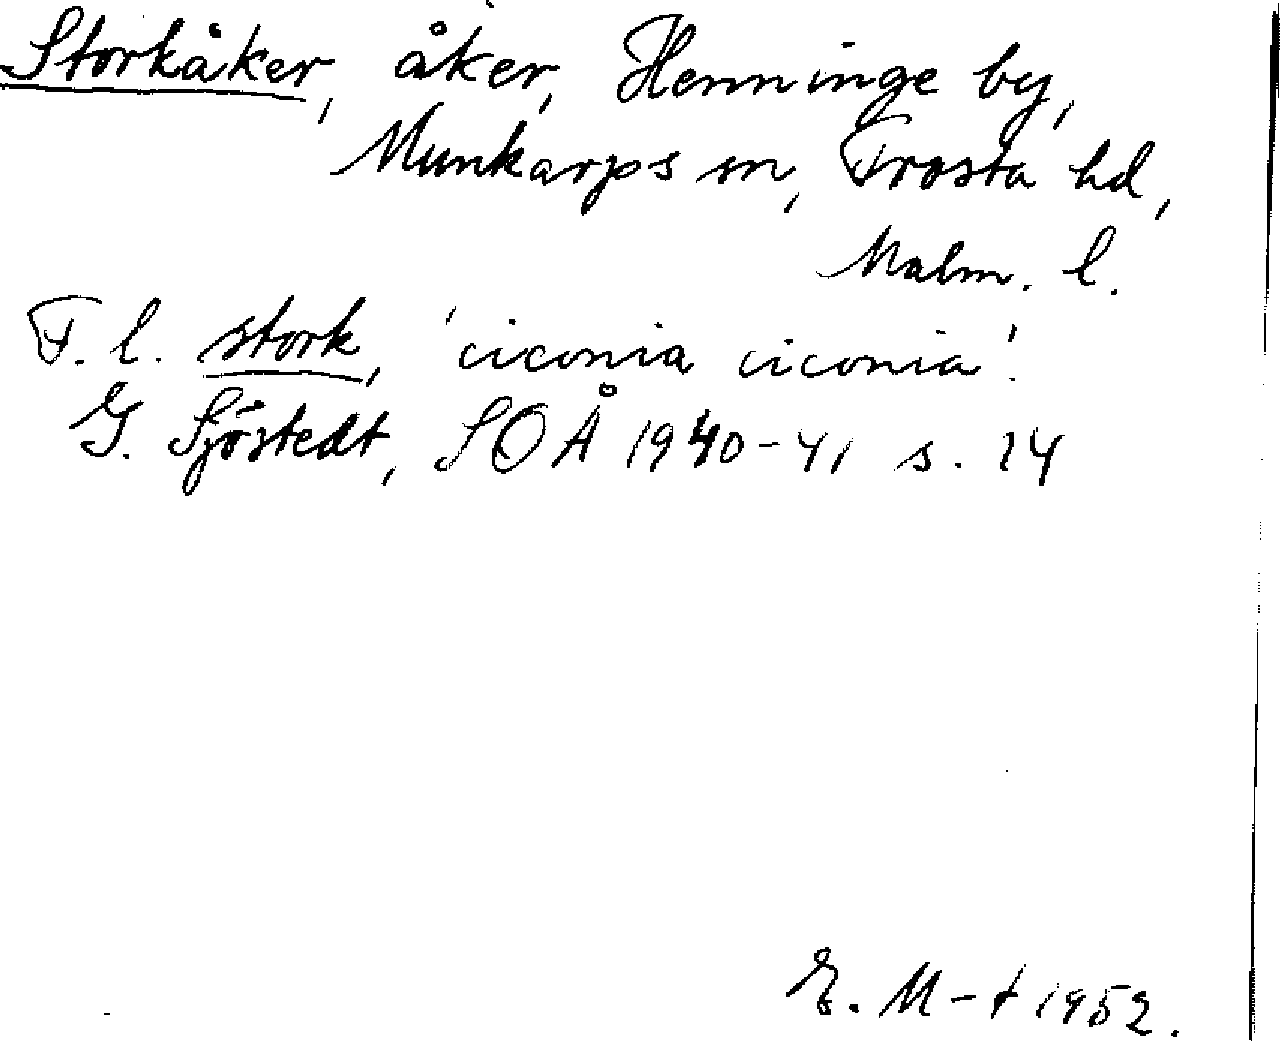 Storkåker, åker, Henninge by,
Munkarps sn, Frosta hd,
Malm. l.
F. l. stork, 'ciconia ciconia'.
G. Sjöstedt, SOÅ 1940-41 s. 14
E. M-t 1952.